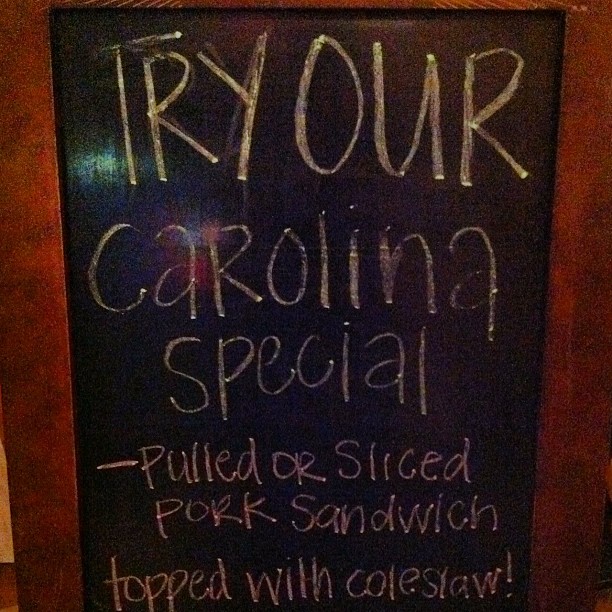 TRY OUR
Carolina
Special
-Pulled or Sliced
Pork Sandwich
topped with coleslaw!